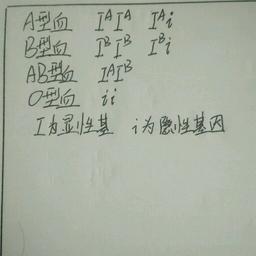 A型血 IᴬIᴬ Iᴬi
B型血 IᴮIᴮ Iᴮi
AB型血 IᴬIᴮ
O型血 ii
I为显性基 i为隐性基因